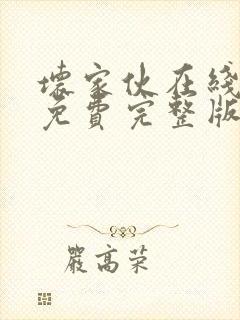 壞家伙在綫
免費完整版
嚴高荣